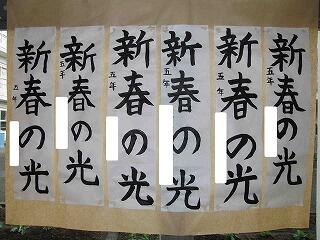 新春の光
五年
新春の光
五年
新春の光
五年
新春の光
五年
新春の光
五年
新春の光
五年